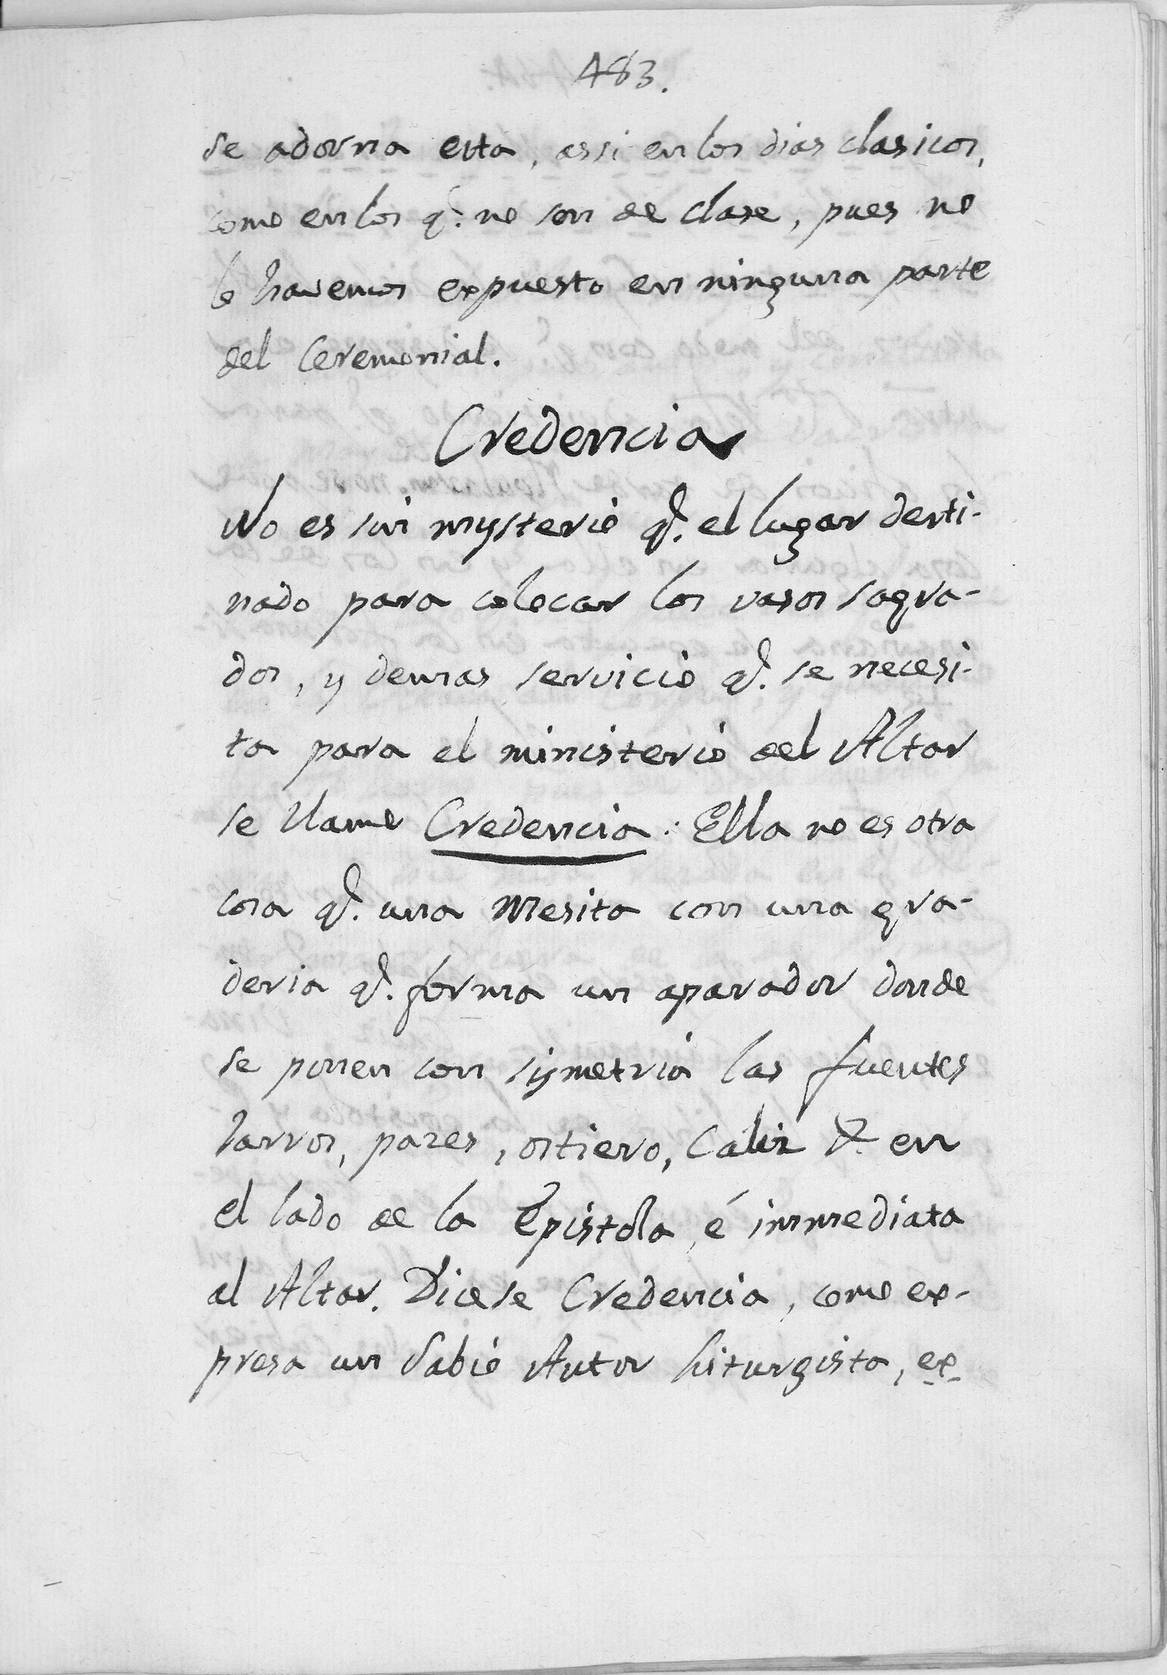 483.
se adorna esta, assi en los dias clasicos,
como en los q.e no son de clase, pues no
lo havemos expuesto en ninguna parte
del Ceremonial.
Credencia
No es sin mysterio q.e el lugar desti-
nado para colocar los vasos sagra-
dos, y demas servicio q.e se necesi-
ta para el ministerio del Altar
se llame Credencia: Ella no es otra
cosa q.e una Mesita con una gra-
deria q.e forma un aparador donde
se ponen con symetria las fuentes
Jarros, pazes, ostiero, Caliz &. en
el lado de la Epistola, é inmediata
al Altar. Dicese Credencia, como ex-
presa un Sabio Autor Liturgista, ex-